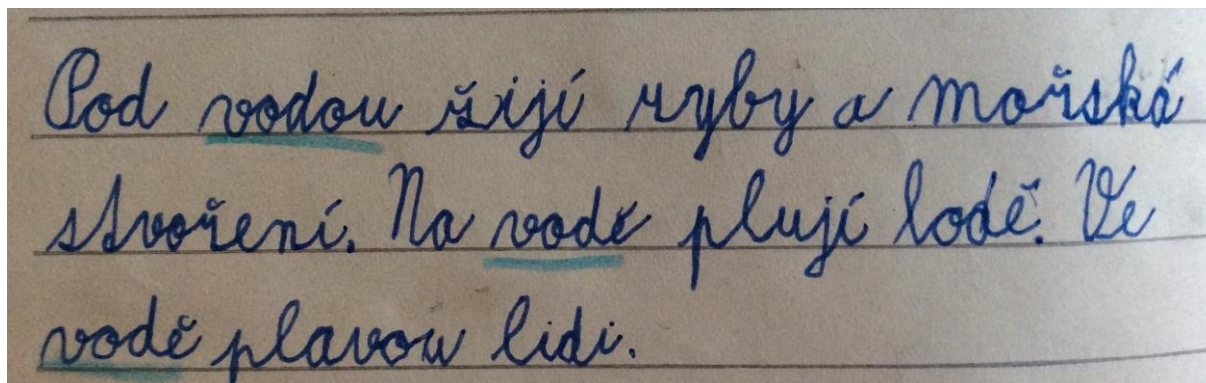 Pod vodou žijí ryby a mořská
stvoření. Na vodě plují lodě. Ve
vodě plavou lidi.